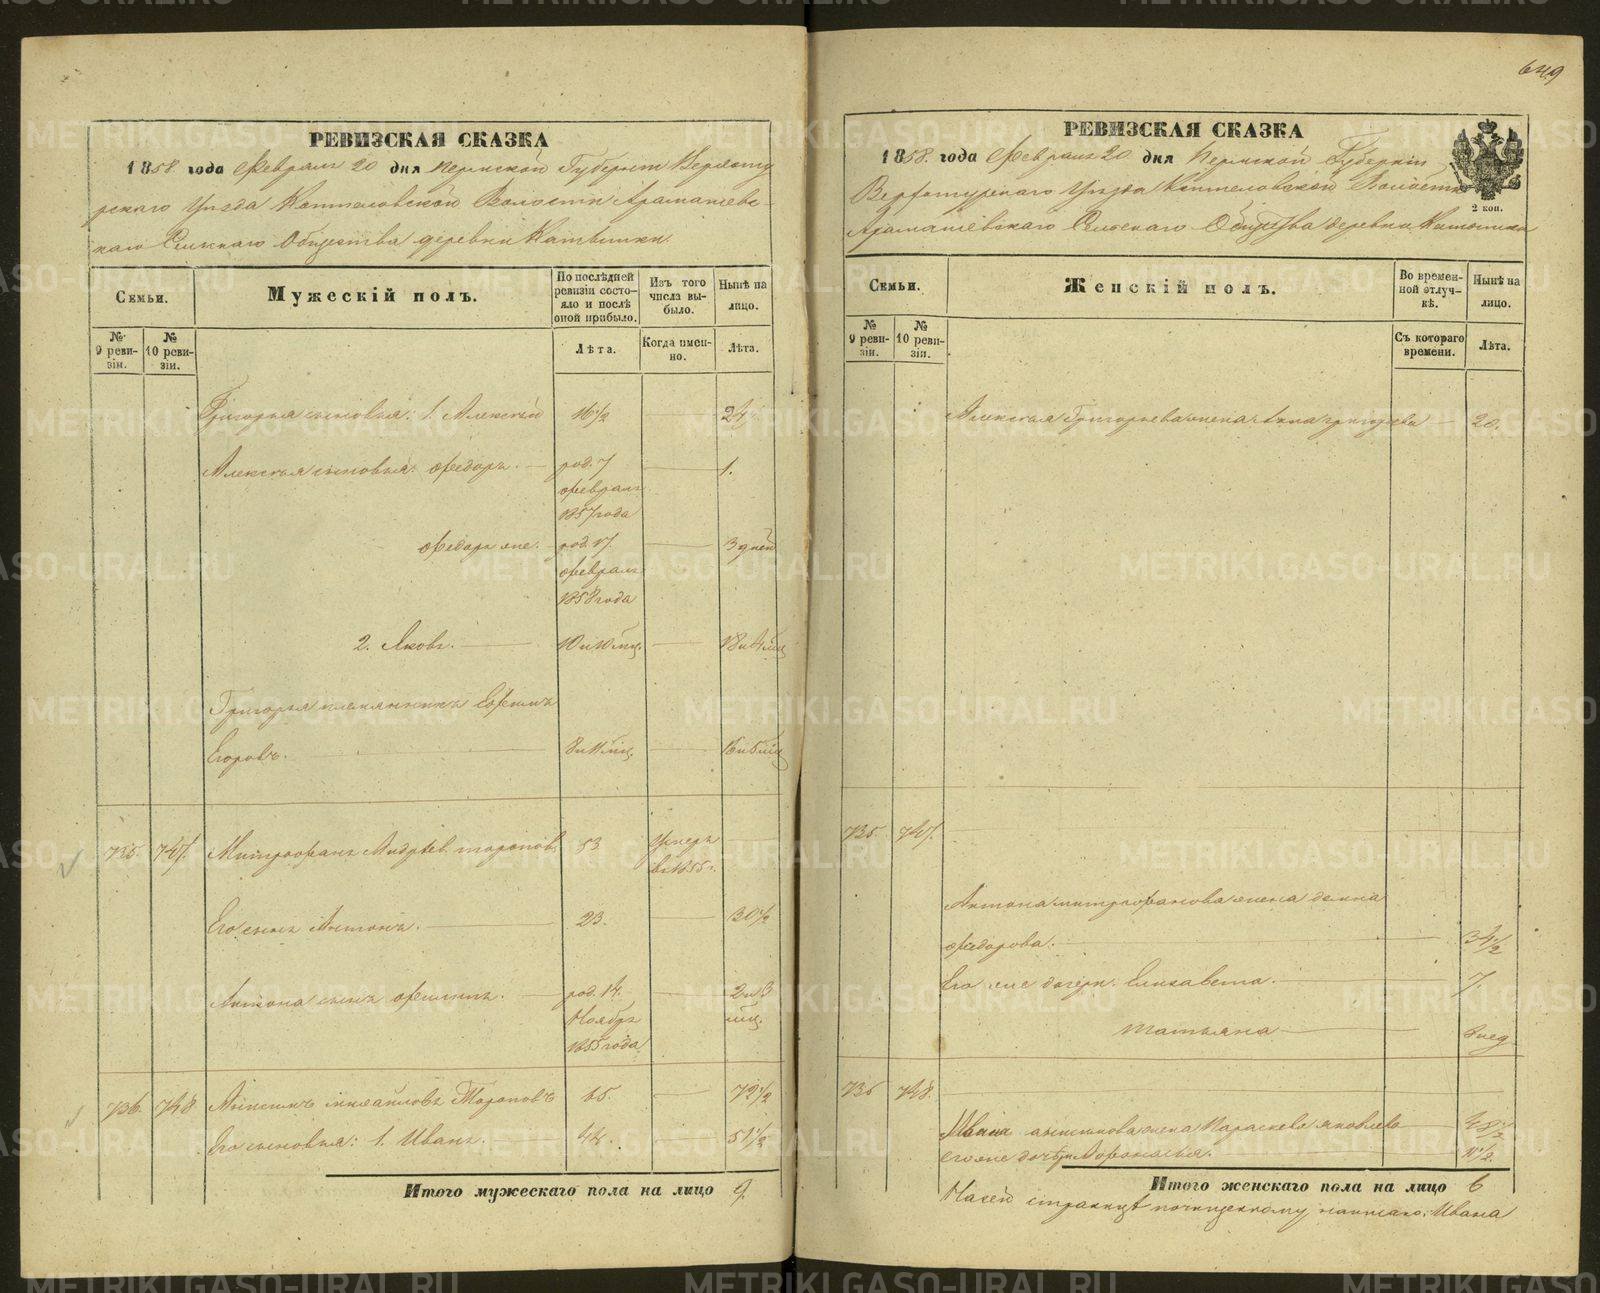 649
РЕВИЗСКАЯ СКАЗКА
1858. года Февраля 20 дня Пермской Губернии Верхоту
рскаго Уѣзда Коптеловской Волости Арамашевс-
каго Сельскаго Общества деревни
Семьи.
Мужескій полъ.
По послѣдней ревизіи состо-
яло и послѣ
оной прибыло.
Изъ того
числа вы-
было.
Нынѣ на
лицо.
№
9 реви-
зіи.
№
10 реви-
зіи.
Лѣта.
Когда имен-
но.
Лѣта.
Григорья сыновья: 1. Алексѣй 16 1/2 24
Алексѣя сыновья: Федоръ. — род. 7 — 1.
Февраля
1857 года
Федоръ же. род. 17. — 3 дней
Февраля
1858 года
2. Яковъ. — 10 и 10 мц. — 18 и 4 мц
Григорья племянникъ Ефимъ
Егоровъ. — 8 и 11 мц. —
735. 747. Митрофанъ Андреев. Торопов. 53 Умеръ —
въ 1855 г.
Его сынъ Антонъ. — 23. — 30 1/2
Антона сынъ — род. 14. — 2 и 3
Ноября мц.
1855 года
736. 748 Михайловъ Тороповъ 65. — 72 1/2
Его сыновья: 1. Иванъ. 44. 51 1/2
Итого мужескаго пола на лицо 9.
РЕВИЗСКАЯ СКАЗКА
1858. года Февраля 20 дня Пермской Губерніи
Верхотурскаго Уѣзда Коптеловской Волости
Арамашевскаго Сельскаго Общества деревни
2 коп.
Семьи.
Женскій полъ.
Во времен-
ной отлуч-
кѣ.
Нынѣ на
лицо.
№
9 реви-
зіи.
№
10 реви-
зіи.
Съ котораго
времени.
Лѣта.
Алексѣя Григорьева жена Анна Григорьева — 20.
735. 747.
Антона Митрофанова жена Домна
Федорова. — 34 1/2
Его же дочери: Елизавета. — 7.
Татьяна —
736 748.
Ивана жена Параскева Яковлева
его же дочь
Итого женскаго пола на лицо 6
На сей страницѣ по чищенному написано: Ивана
METRIKI.GASO-URAL.RU